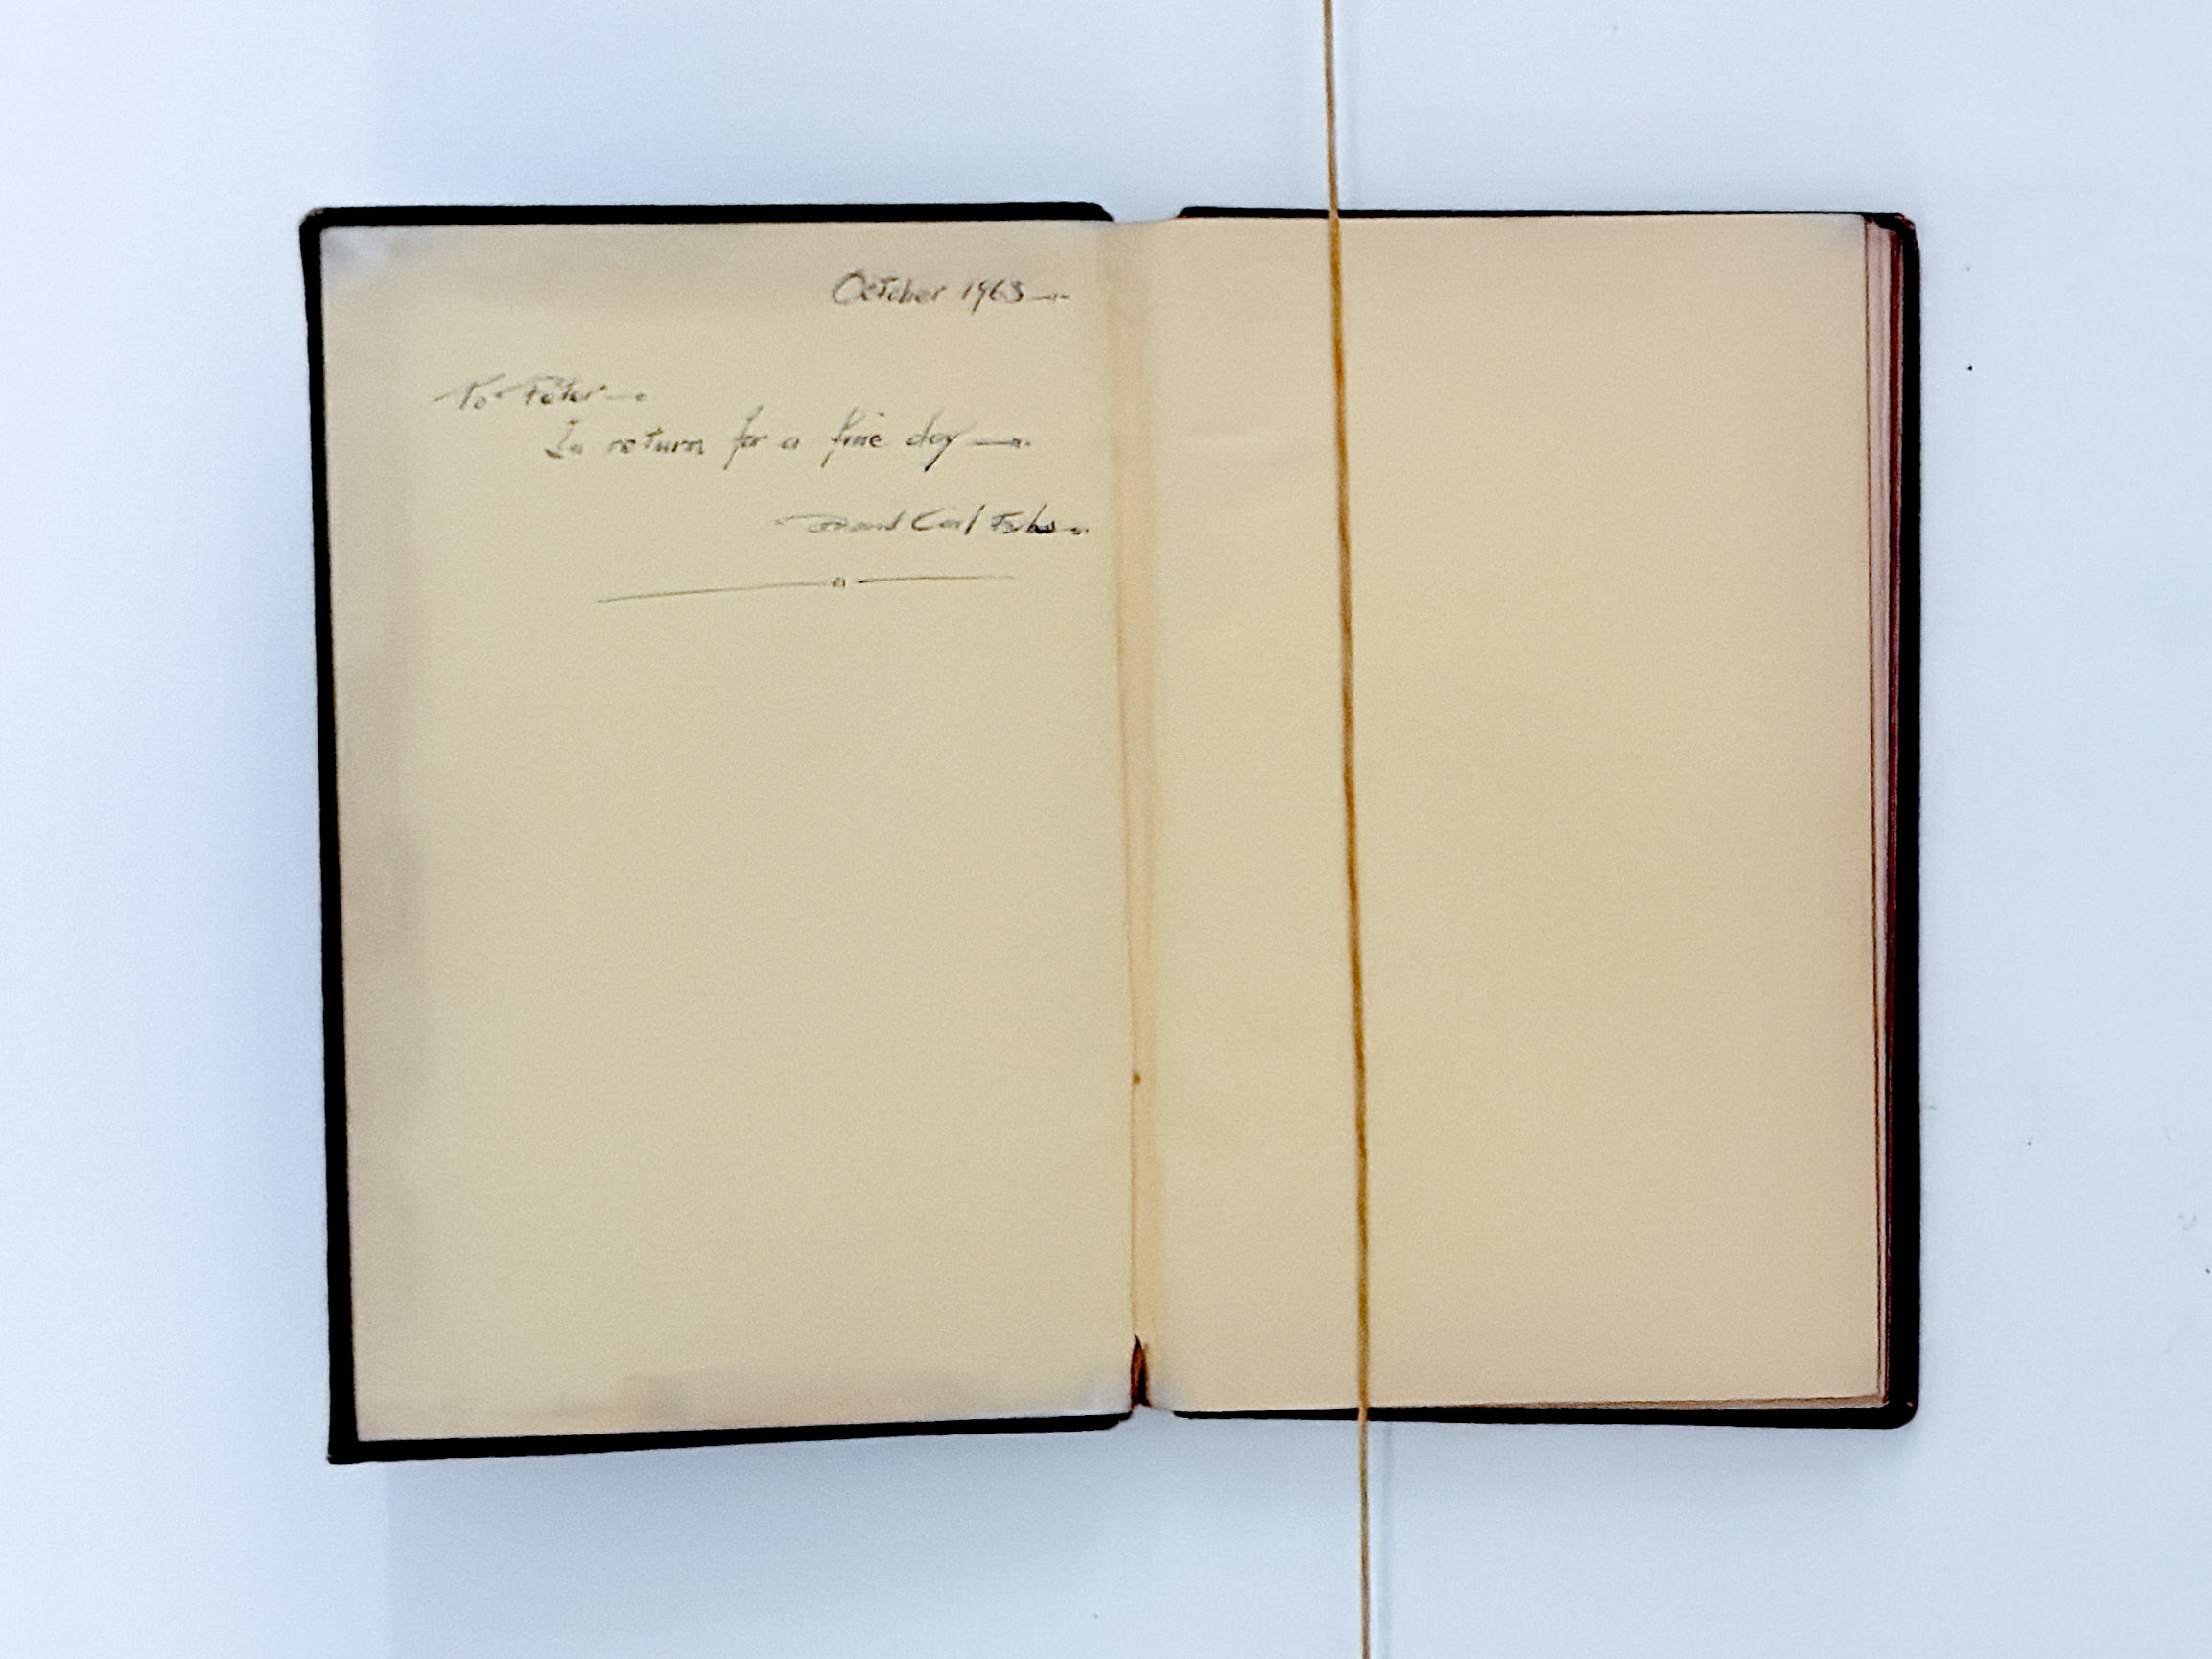 October 1963 —
To Peter —
In return for a fine day —
Carl